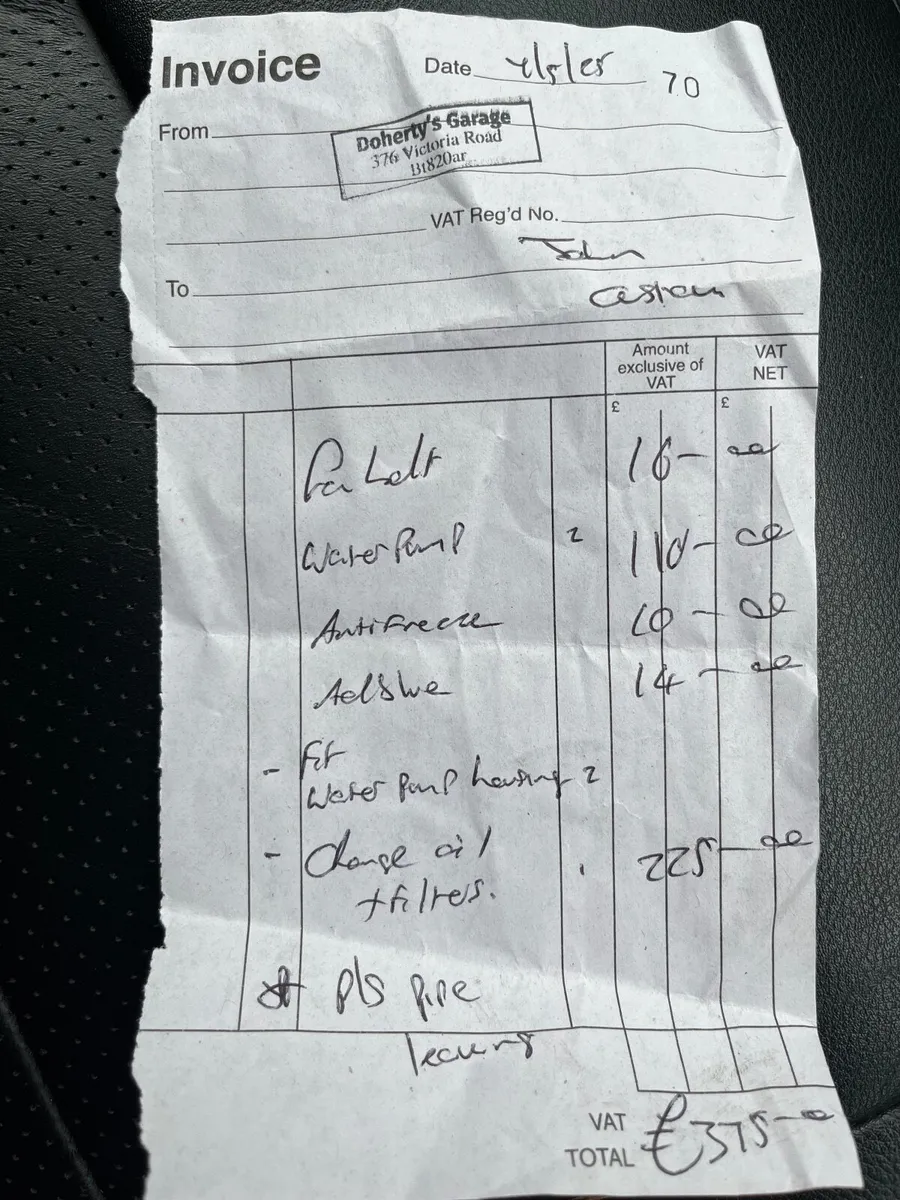 Invoice
Date 4/5/25 70
From
Doherty's Garage
376 Victoria Road
Bt820ar
VAT Reg'd No.
John
To
Amount exclusive of VAT
VAT NET
£ £
Fan belt 16-00
Water Pump 2 110-00
Antifreeze 10-00
Adblue 14-00
- Fit
Water Pump housing 2
- Change oil 225-00
+ filters.
P/S pipe
leaking
VAT
TOTAL £375-00